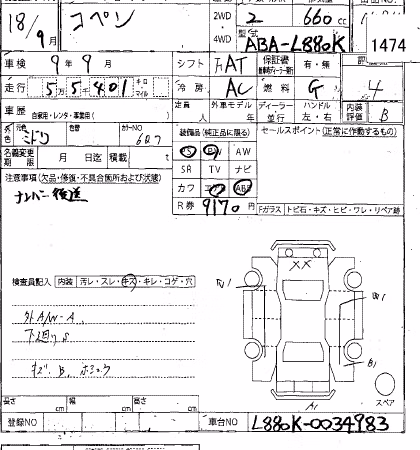 18/9月 コペン 2WD 2 660cc
4WD 型式 ABA-L880K 1474
車検 9年9月 シフト FAT 保証書 有・無 4
走行 55,401 キロ・マイル 冷房 AC 燃料 G
車歴 自家用・レンタ・事業用( ) 定員 人 外車モデル 年 ディーラー 並行 ハンドル 左・右 内装評価 B
外色 元色 ミドリ 色替 カラーNO 607 装備品(純正品に限る) セールスポイント(正常に作動するもの)
PS PW AW
名義変更期限 月 日迄 積載 t SR TV ナビ
注意事項(欠品・修復・不具合箇所および状態) カワ エアB ABS
ナンバー後送 R券 9170円
Fガラス トビ石・キズ・ヒビ・ワレ・リペア跡
検査員記入 内装 汚レ・スレ・キズ・キレ・コゲ・穴
XX
外A/W-A
下廻りS
キズ、B、
B1
A1
スペア
長さ cm 幅 cm 高さ cm
登録NO 車台NO L880K-0034983